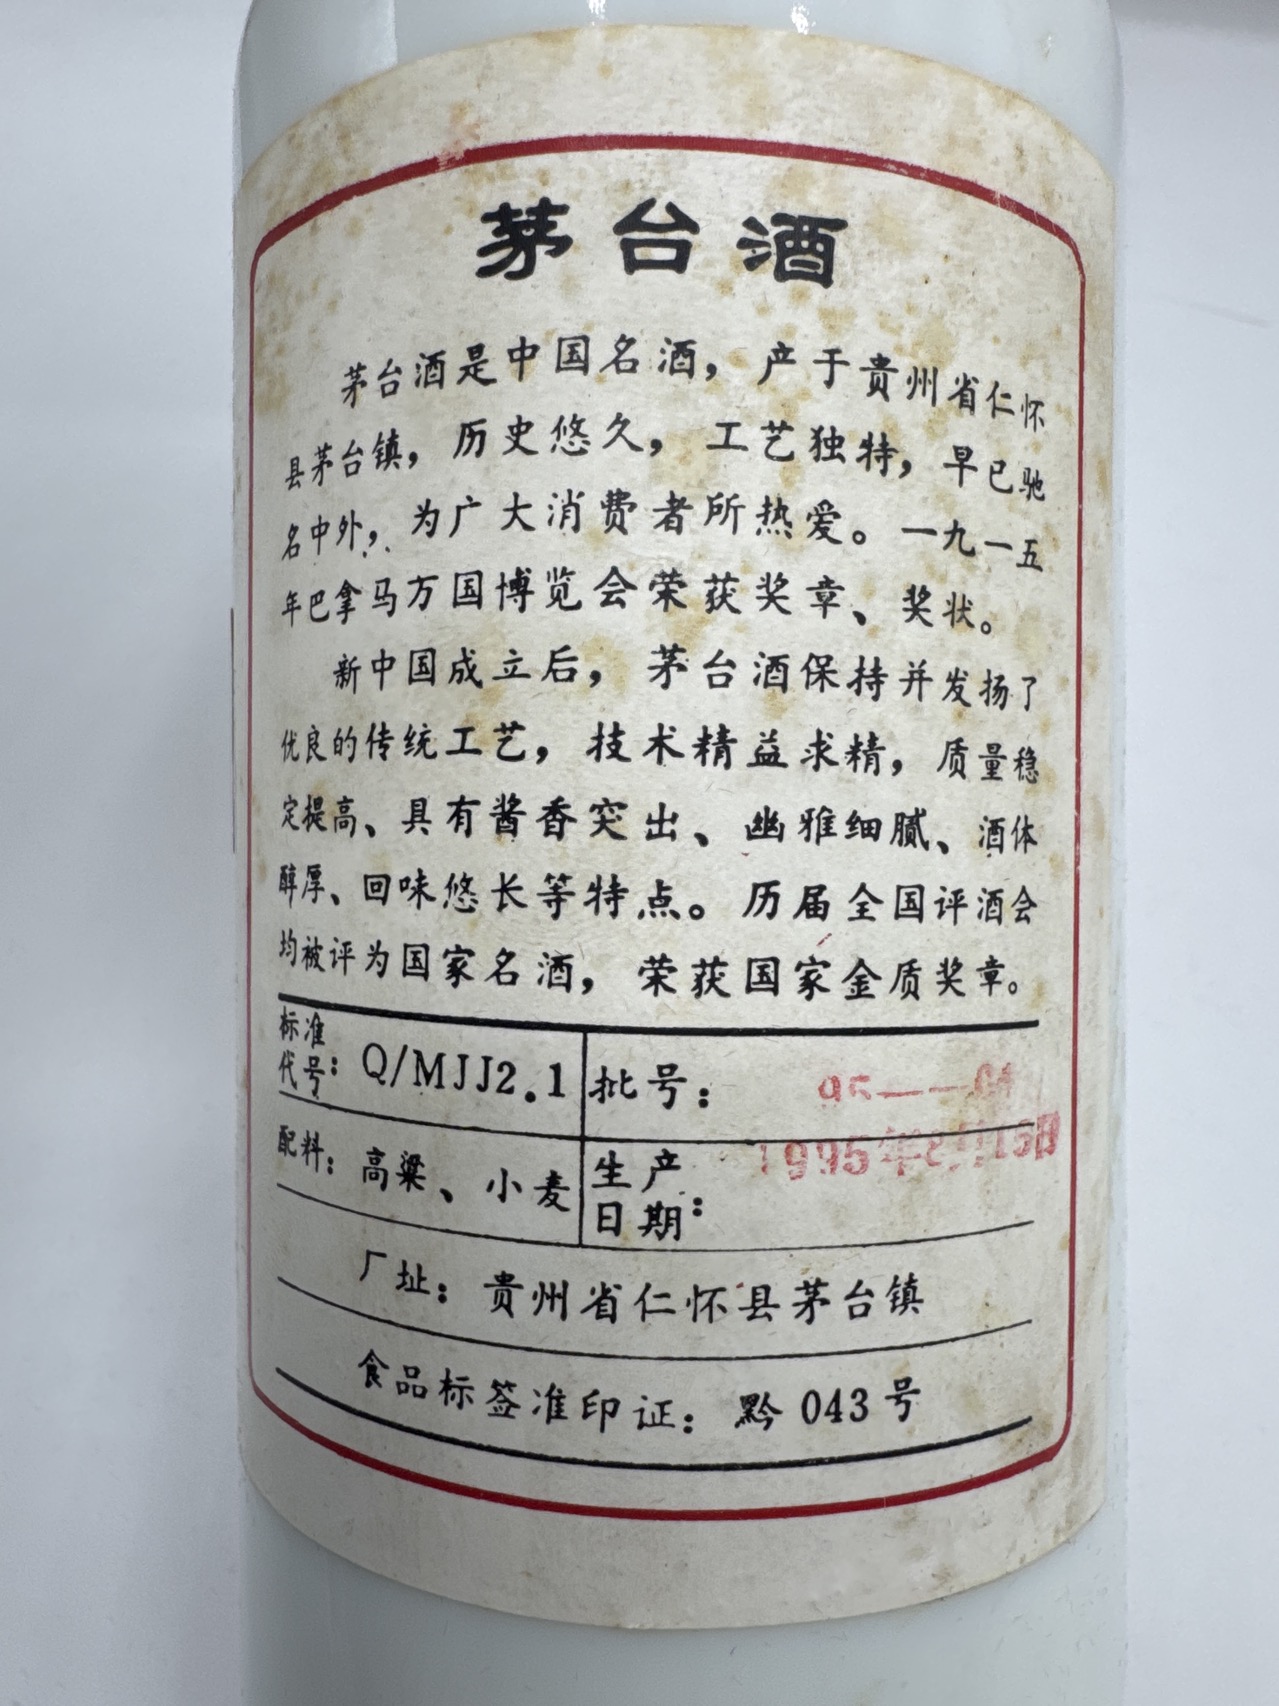 茅台酒
茅台酒是中国名酒，产于贵州省仁怀
县茅台镇，历史悠久，工艺独特，早已驰
名中外，为广大消费者所热爱。一九一五
年巴拿马万国博览会荣获奖章、奖状。
新中国成立后，茅台酒保持并发扬了
优良的传统工艺，技术精益求精，质量稳
定提高、具有酱香突出、幽雅细腻、酒体
醇厚、回味悠长等特点。历届全国评酒会
均被评为国家名酒，荣获国家金质奖章。
标准代号：Q/MJJ2.1 批号：95——
配料：高粱、小麦 生产日期：1995年
厂址：贵州省仁怀县茅台镇
食品标签准印证：黔 043 号